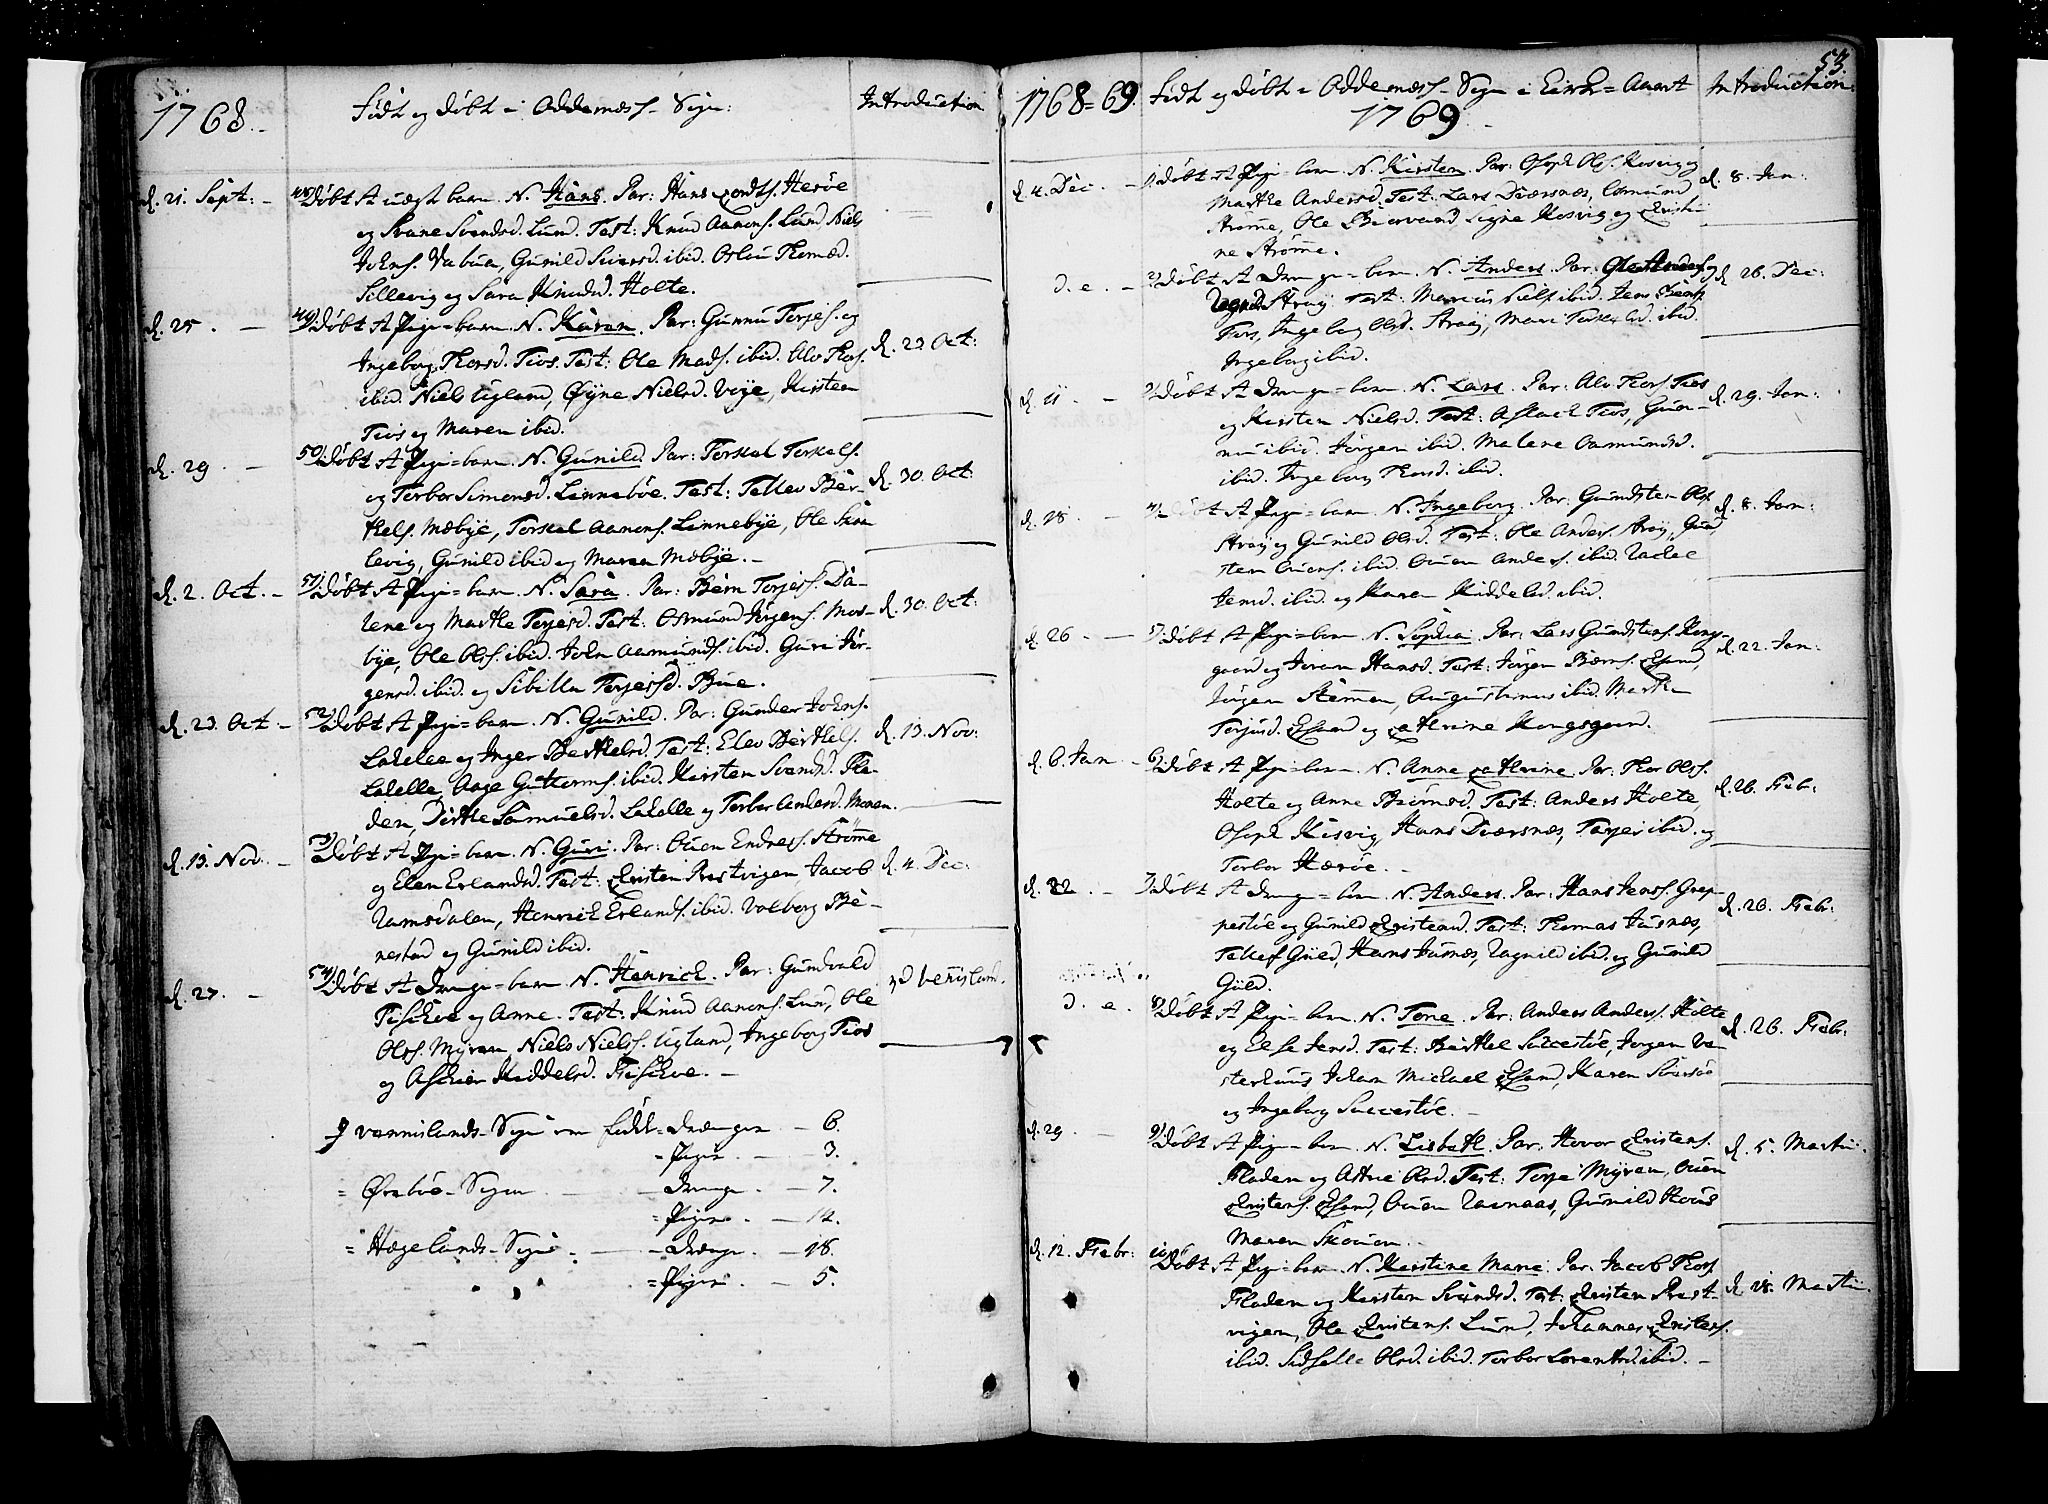 53
1768.
Födt og döbt i Oddernæss Sogn:
Introduction
d. 21. Sept:
48) Döbt Et uægt barn. N. Hans. Par: Hans Hesöe
og Svane Svendsd. Lund. Test: Knud Aanons. Lund, Niels
Johns. Vabua, Gunild Sivers d. ibid. Oslou Thomæd.
Sillevig og Sara Knudsd. Holte.
d. 25.
49) Döbt Et Pige=barn. N. Karen. Par: Gunnu Torjes. og
Ingeborg Thorsd. Tios. Test: Ole Mads. ibid. Alv Thors.
ibid. Niels Ugland, Öyne Nielsd. Voje, Kirsten
Tios og Maren ibid.
d. 23. Oct:
d. 29.
50) Döbt Et Pige=barn. N. Gunild. Par: Torkel Torkels.
og Torbor Simonsd. Linneböe. Test: Tellev Ber-
thels. Mæbye, Torkel Aanons. Linnebye, Ole
levig, Gunild ibid og Maren Mæbye.
d. 30. Oct:
d. 2. Oct.
51) Döbt Et Pige=barn. N. Sara. Par: Biörn Torjers. Da-
lene og Marthe Torjersd. Test: Osmund Jörgens. Mos-
bye, Ole Ols. ibid. John Aamunds. ibid. Guri Jör-
gensd. ibid. og Sibilla Torjersd. Bue.
d. 30. Oct:
d. 23. Oct
52) Döbt Et Pige=barn. N. Gunild. Par: Gunder Johns.
Ladelle og Inger Berthelsd. Test: Elev Berthels.
Ladelle, Aage Guttorms. ibid. Kirsten Svendsd. Fla-
den, Dorthe Samuelsd. Ladelle og Torbor Andersd. Moren.
d. 13. Nov:
d. 13. Nov.
53) Döbt Et Pige=barn. N. Guri. Par: Ouen Endres. Strömme
og Elen Erlandsd. Test: Christen Prestvigen, Jacob
Ramsdalen, Henrich Erlands. ibid. Valborg Be-
nestad og Gunild ibid.
d. 4. Dec:
d. 27.
54) Döbt Et Drenge=barn. N. Henrich. Par: Gundvald
Fischue og Anne. Test: Knud Aanons. Lund, Ole
Ols. Myren, Niels Niels. Ugland, Ingeborg Tios
og Aschier Kiddelsd. Fischue.
i Vennisland.
J Vennislands-Sogn ere födde - Drenger - 6.
= Piger. - 3.
= Öreböe-Sogn - Drenge. - 7.
= Piger. - 14.
= Hægelands-Sogn. - Drenge. - 18.
= Piger. - 5.
1768=69.
Födt og döbt i Oddernæss-Sogn i Kirke=Aaret
1769.
Introduction:
d. 4. Dec.
1) Döbt Et Pige-barn. N. Kirsten. Par: Osoph Ols. Kosvig og
Marthe Andersd. Test: Lars Dværsnæs, Osmund
Strömme, Ole Biorvand, Signe Kosvig og Christi-
ne Strömme.
d. 8. Jan:
d. e.
2) Döbt Et Drenge=barn. N. Anders. Par: Ole Anders. og
Ragnild Straÿ Test: Marcus Niels. ibid. Jens
Ingeborg Olsd. Straÿ, Mari Torkelsd. ibid.
Ingeborg ibid.
d. 26. Dec:
d. 11.
3) Döbt Et Drenge=barn. N. Lars. Par: Alv Thors. Tios
og Kirsten Nielsd. Test: Aslach Tios, Gun-
nu ibid. Jörgen ibid. Malene Aamundsd.
ibid. Ingeborg Thorsd. ibid.
d. 29. Jan:
d. 18.
4) Döbt Et Pige=barn. N. Ingeborg. Par: Gundsten Ols.
Straÿ og Gunild Olsd. Test: Ole Anders. Straÿ, Gund-
sten Ouens. ibid. Ouen Anders. ibid. Rachel
Jensd. ibid. og Karen Kiddelsd. ibid.
d. 8. Jan:
d. 26.
5) Döbt Et Pige=barn. N. Sophia. Par: Lars Gundstens. Kongs-
gaard og Joran Hansd. Test: Jörgen Biörns. Egsand,
Jörgen Stemmen, Augustinus ibid. Marthe
Torjusd. Egsand og Cathrine Kongsgaard.
d. 22. Jan:
d. 6. Jan
6) Döbt Et Pige=barn. N. Anne Cathrine. Par: Thor Ols.
Holte og Anne Biörnsd. Test: Anders Holte,
Osoph Kosvig, Hans Dværsnæs, Torjer ibid. og
Torbor Hæröe.
d. 26. Febr:
d. 22.
7) Döbt Et Drenge=barn. N. Anders. Par: Hans Jens. Grep-
pestöe og Gunild Christensd. Test: Thomas Justnæs,
Tellef Guld, Hans Justnæs, Ragnild ibid. og Gunild
Guld.
d. 26. Febr:
d. e.
8) Döbt Et Pige=barn. N. Tone. Par: Anders Anders. Holte
og Else Jensd. Test: Berthel Succestöe, Jörgen Ve-
sterhuus Johan Michael Egsand, Karen
og Ingeborg Succestöe.
d. 26. Febr:
d. 29.
9) Döbt Et Pige=barn. N. Lisbeth. Par: Hovor Christens.
Fladen og Astrie Olsd. Test: Torje Myren, Ouen
Christens. Egsand, Ouen Ravnaas, Gunild Houus
Maren Skouen.
d. 5. Martii:
d. 12. Febr:
10) Döbt Et Pige=barn. N. Kirstine Marie. Par: Jacob Thors.
Fladen og Kirsten Svendsd. Test: Christen Prest-
vigen, Ole Christens. Lund, Johannes Christens.
ibid. Sidselle Olsd. ibid. Torbor Lorentsd. ibid.
d. 18. Martii.